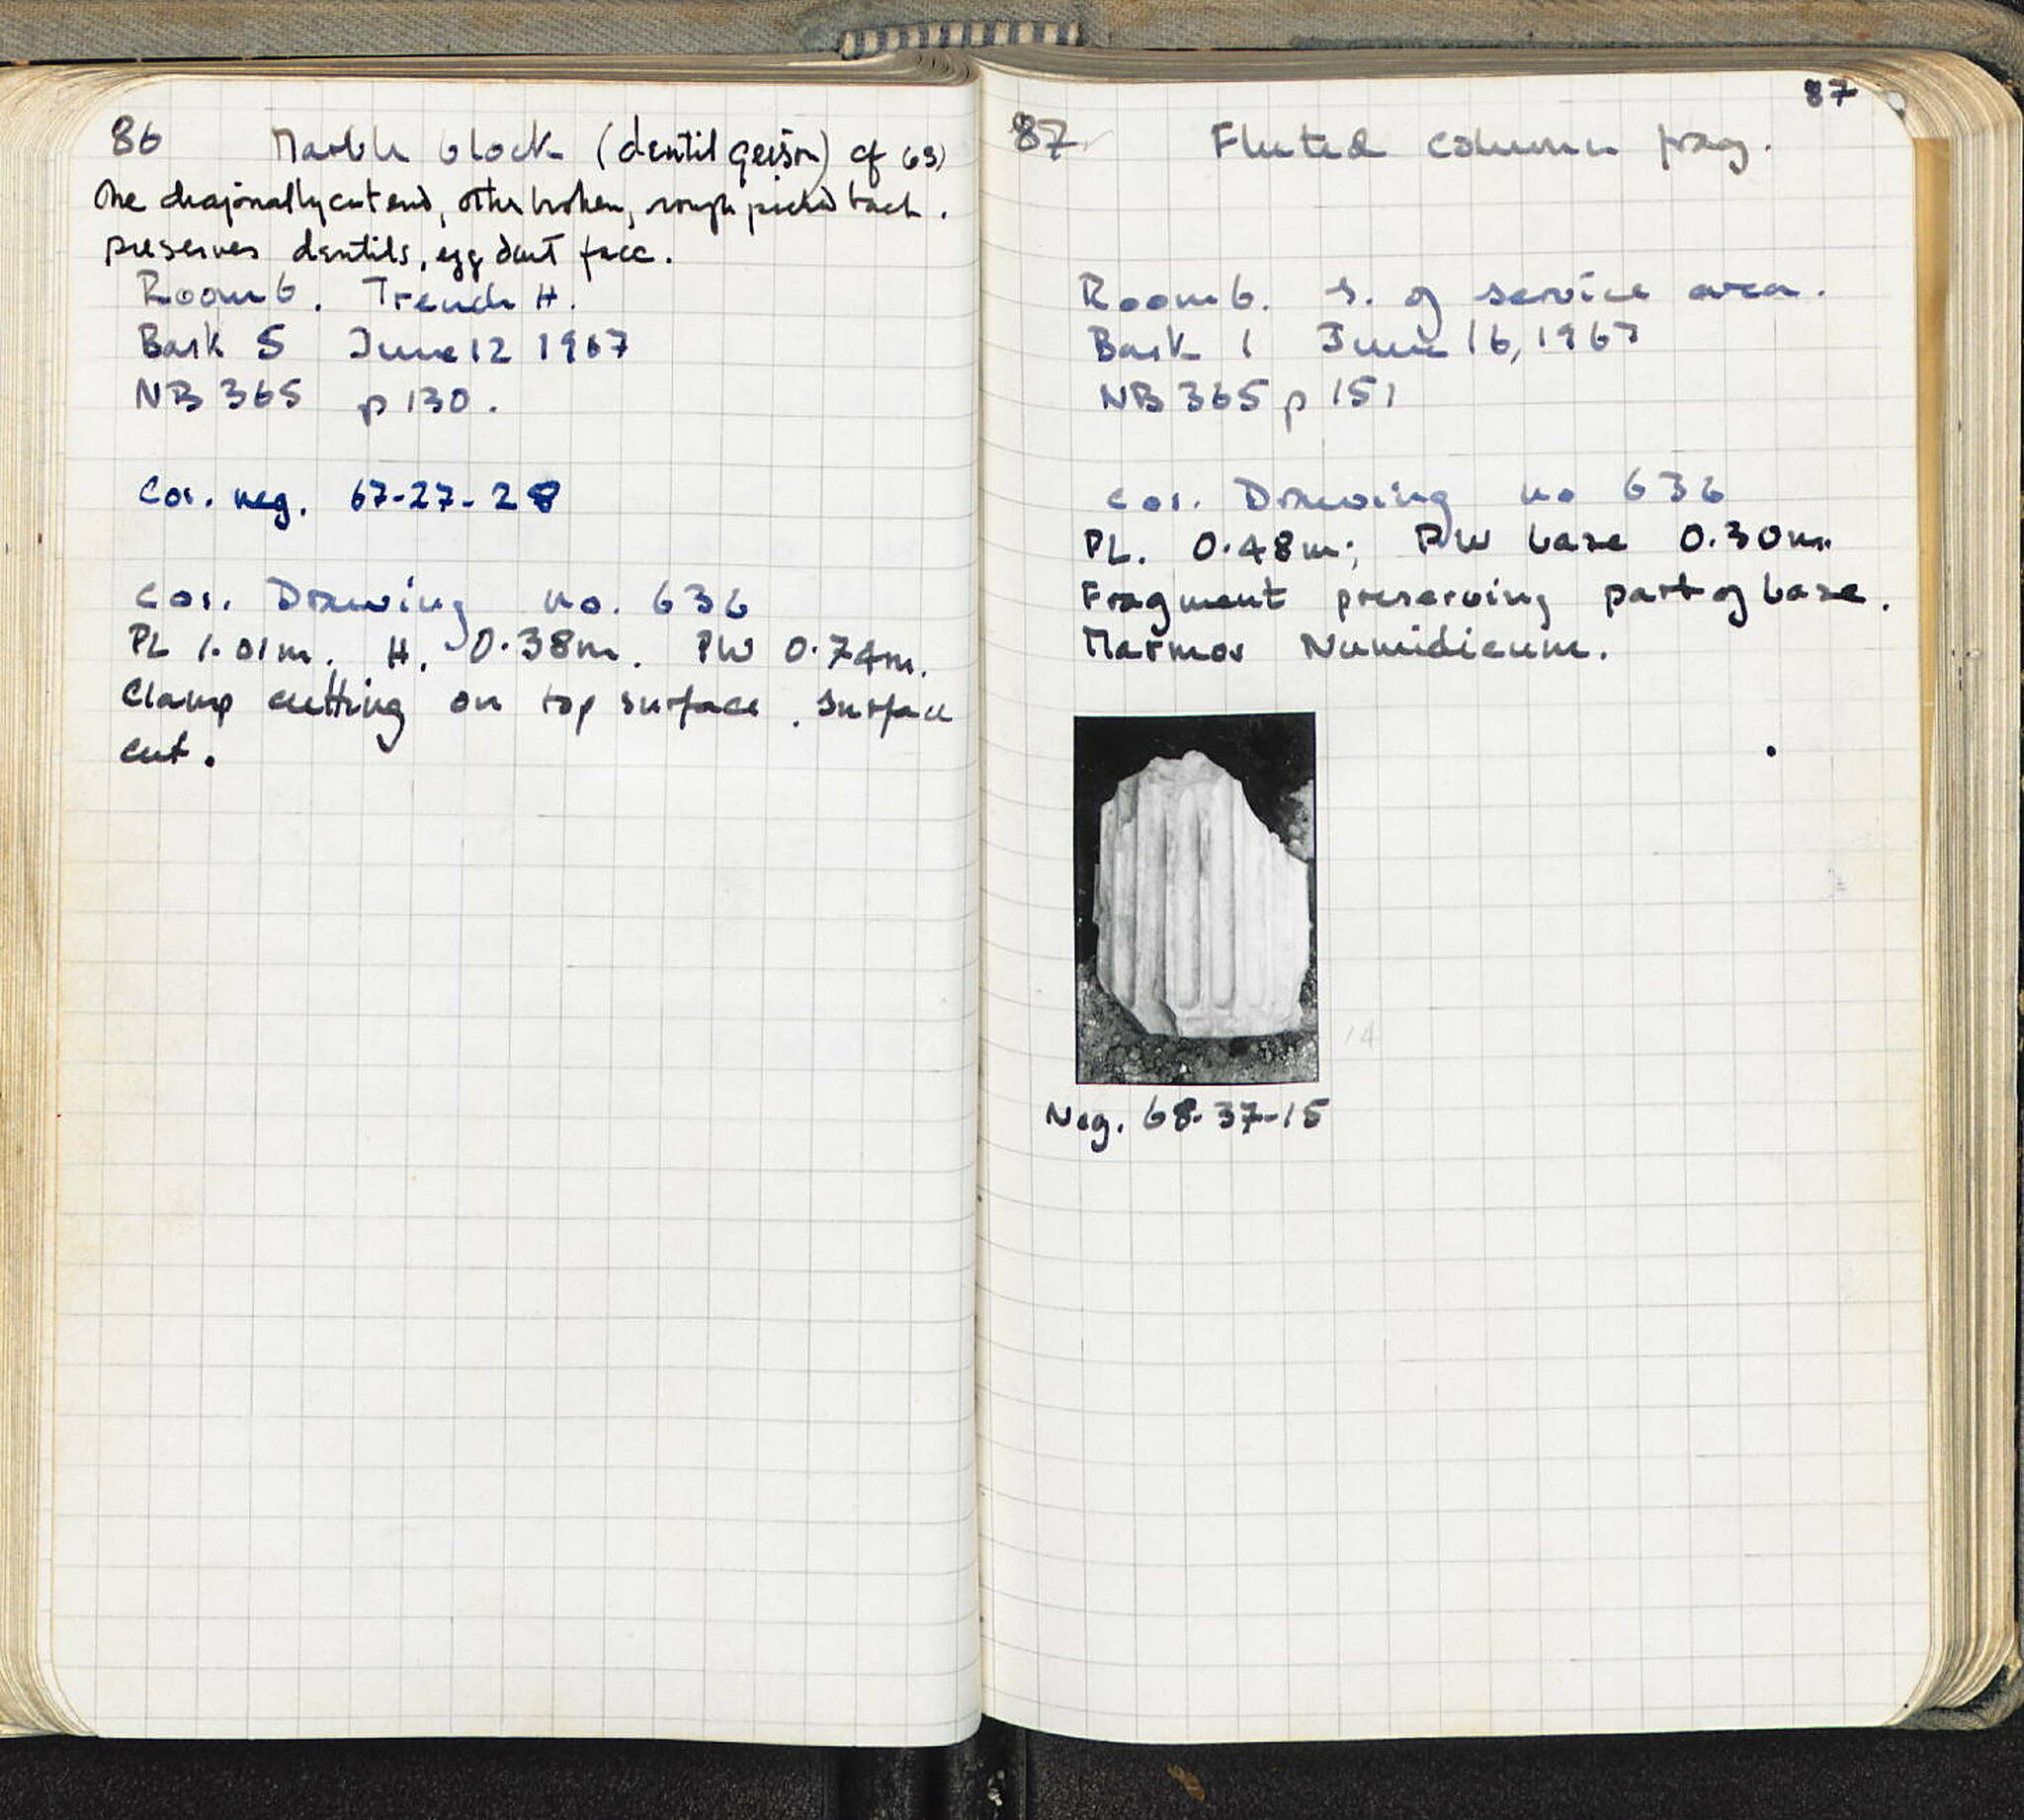 86 Marble block (dentil geison) cf 63)
One diagonally cut end, other broken, rough picked back.
preserves dentils, egg dart face.
Room 6. Trench H.
Bask 5 June 12 1967
NB 365 p 130.
Cor. neg. 67-27-28
Cor. Drawing no. 636
PL 1.01m. H. 0.38m. PW 0.74m.
Clamp cutting on top surface. Surface
cut.
87
87 Fluted column frag.
Room 6. S. of service area.
Bask 1 June 16, 1967
NB 365 p 151
Cor. Drawing no 636
PL. 0.48m; PW base 0.30m.
Fragment preserving part of base.
Marmor Numidicum.
14
Neg. 68-37-15